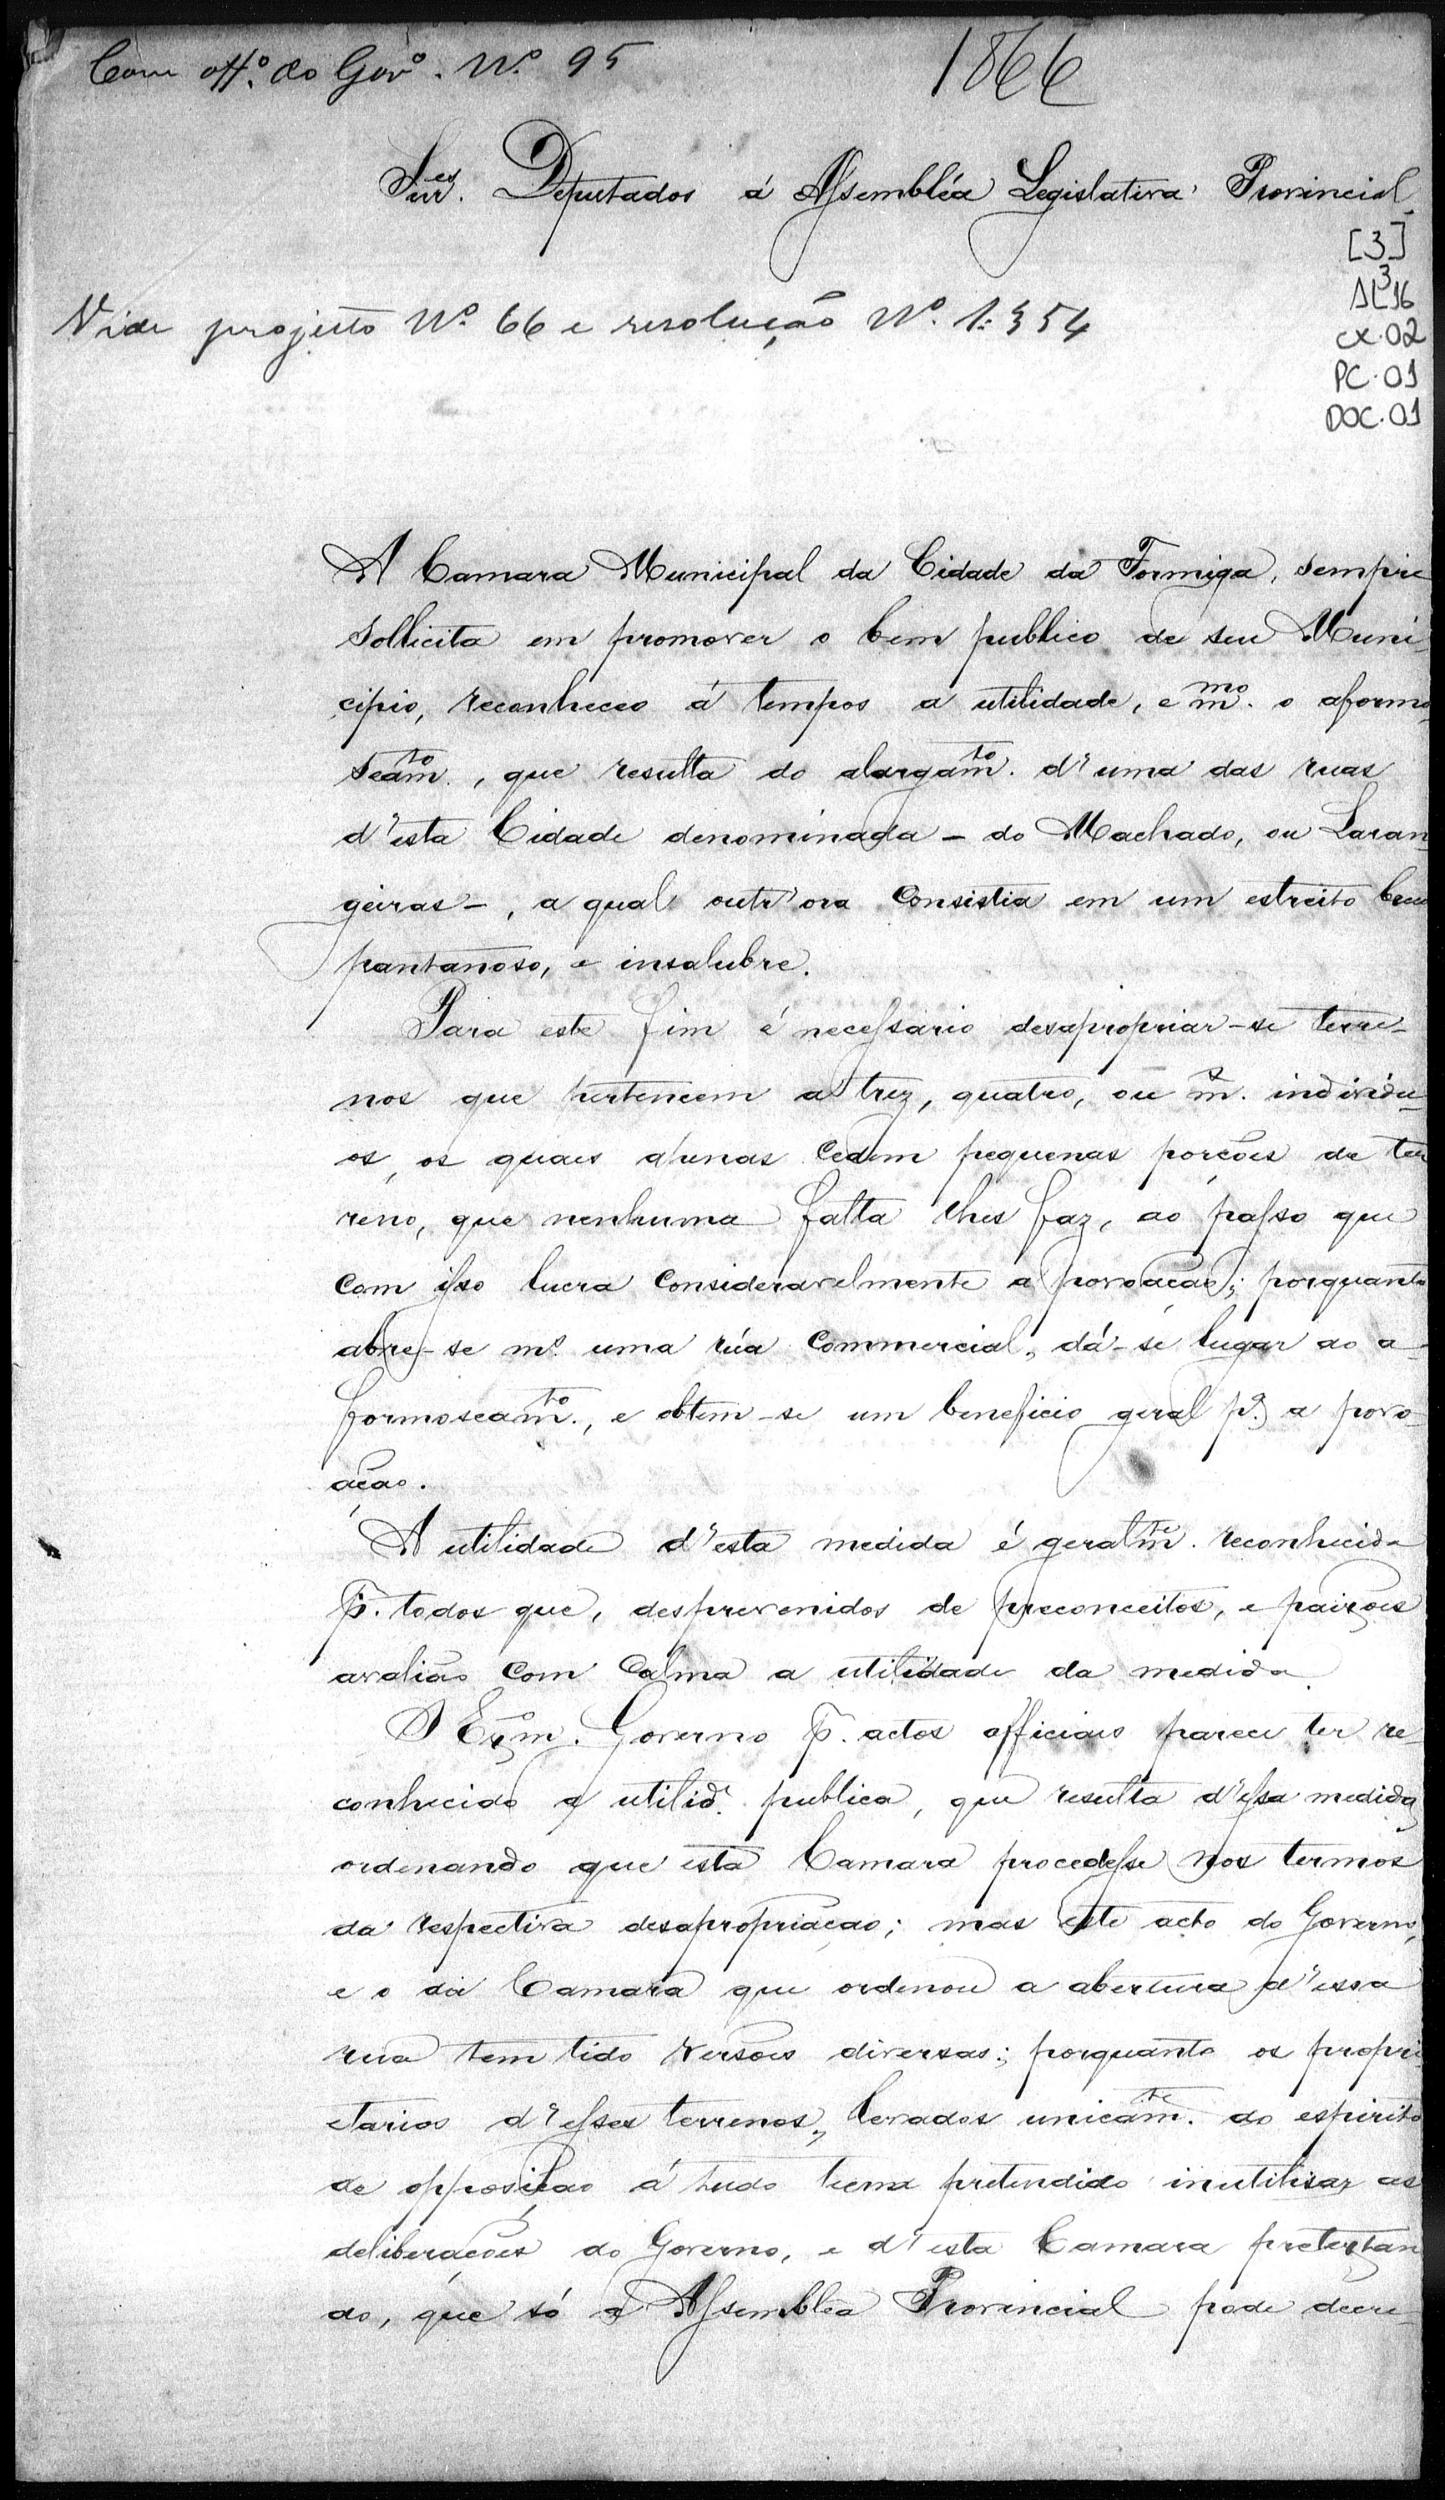 Com off.º do Gov.º Nº 95
1866
Snr.es Deputados á Assembléa Legislativa Provincial.
[3]
AL³16
cx.02
PC.01
DOC.01
Vide projecto Nº 66 e resolução Nº 1:354
A Camara Municipal da Cidade da Formiga, sempre
sollicita em promover o bem publico de seu Muni-
cipio, reconheceo á tempos a utilidade, e m.mo o aformo-
seam.to, que resulta do alargam.to d'uma das ruas
d'esta Cidade denominada - do Machado, ou Laran-
geiras -, a qual outr'ora consistia em um estreito becco
pantanoso, e insalubre.
Para este fim é necessario desapropriar-se terre-
nos que pertencem a trez, quatro, ou m.s individu-
os, os quais apenas cedem pequenas porções de ter
reno, que nenhuma falta lhes faz, ao passo que
com isso lucra consideravelmente a povoação; porquanto
abre-se m.s uma rúa commercial, dá-se lugar ao a-
formoseam.to, e obtem-se um beneficio geral p.a a povo-
ação.
A utilidade d'esta medida é geralm.te reconhecida
p. todos que, desprevenidos de preconceitos, e paixões
avalião com calma a utilidade da medida
O Exm.º Governo p. actos officiais parece ter re-
conhecido a utilid.e publica, que resulta d'essa medida
ordenando que esta Camara procedesse nos termos
da respectiva desapropriação; mas este acto do Governo,
e o da Camara que ordenou a abertura d'essa
rua tem tido versões diversas; porquanto os propri-
etarios d'esses terrenos, levados unicam.te do espirito
de opposição á tudo tem pretendido inutilisar as
deliberações do Governo, e d'esta Camara pretextan
do, que só a Assemblea Provincial pode decre-